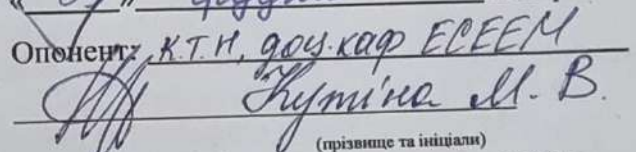 Опонент: к.т.н, доц. каф ЕСЕЕМ
Кутіна М. В.
(прізвище та ініціали)